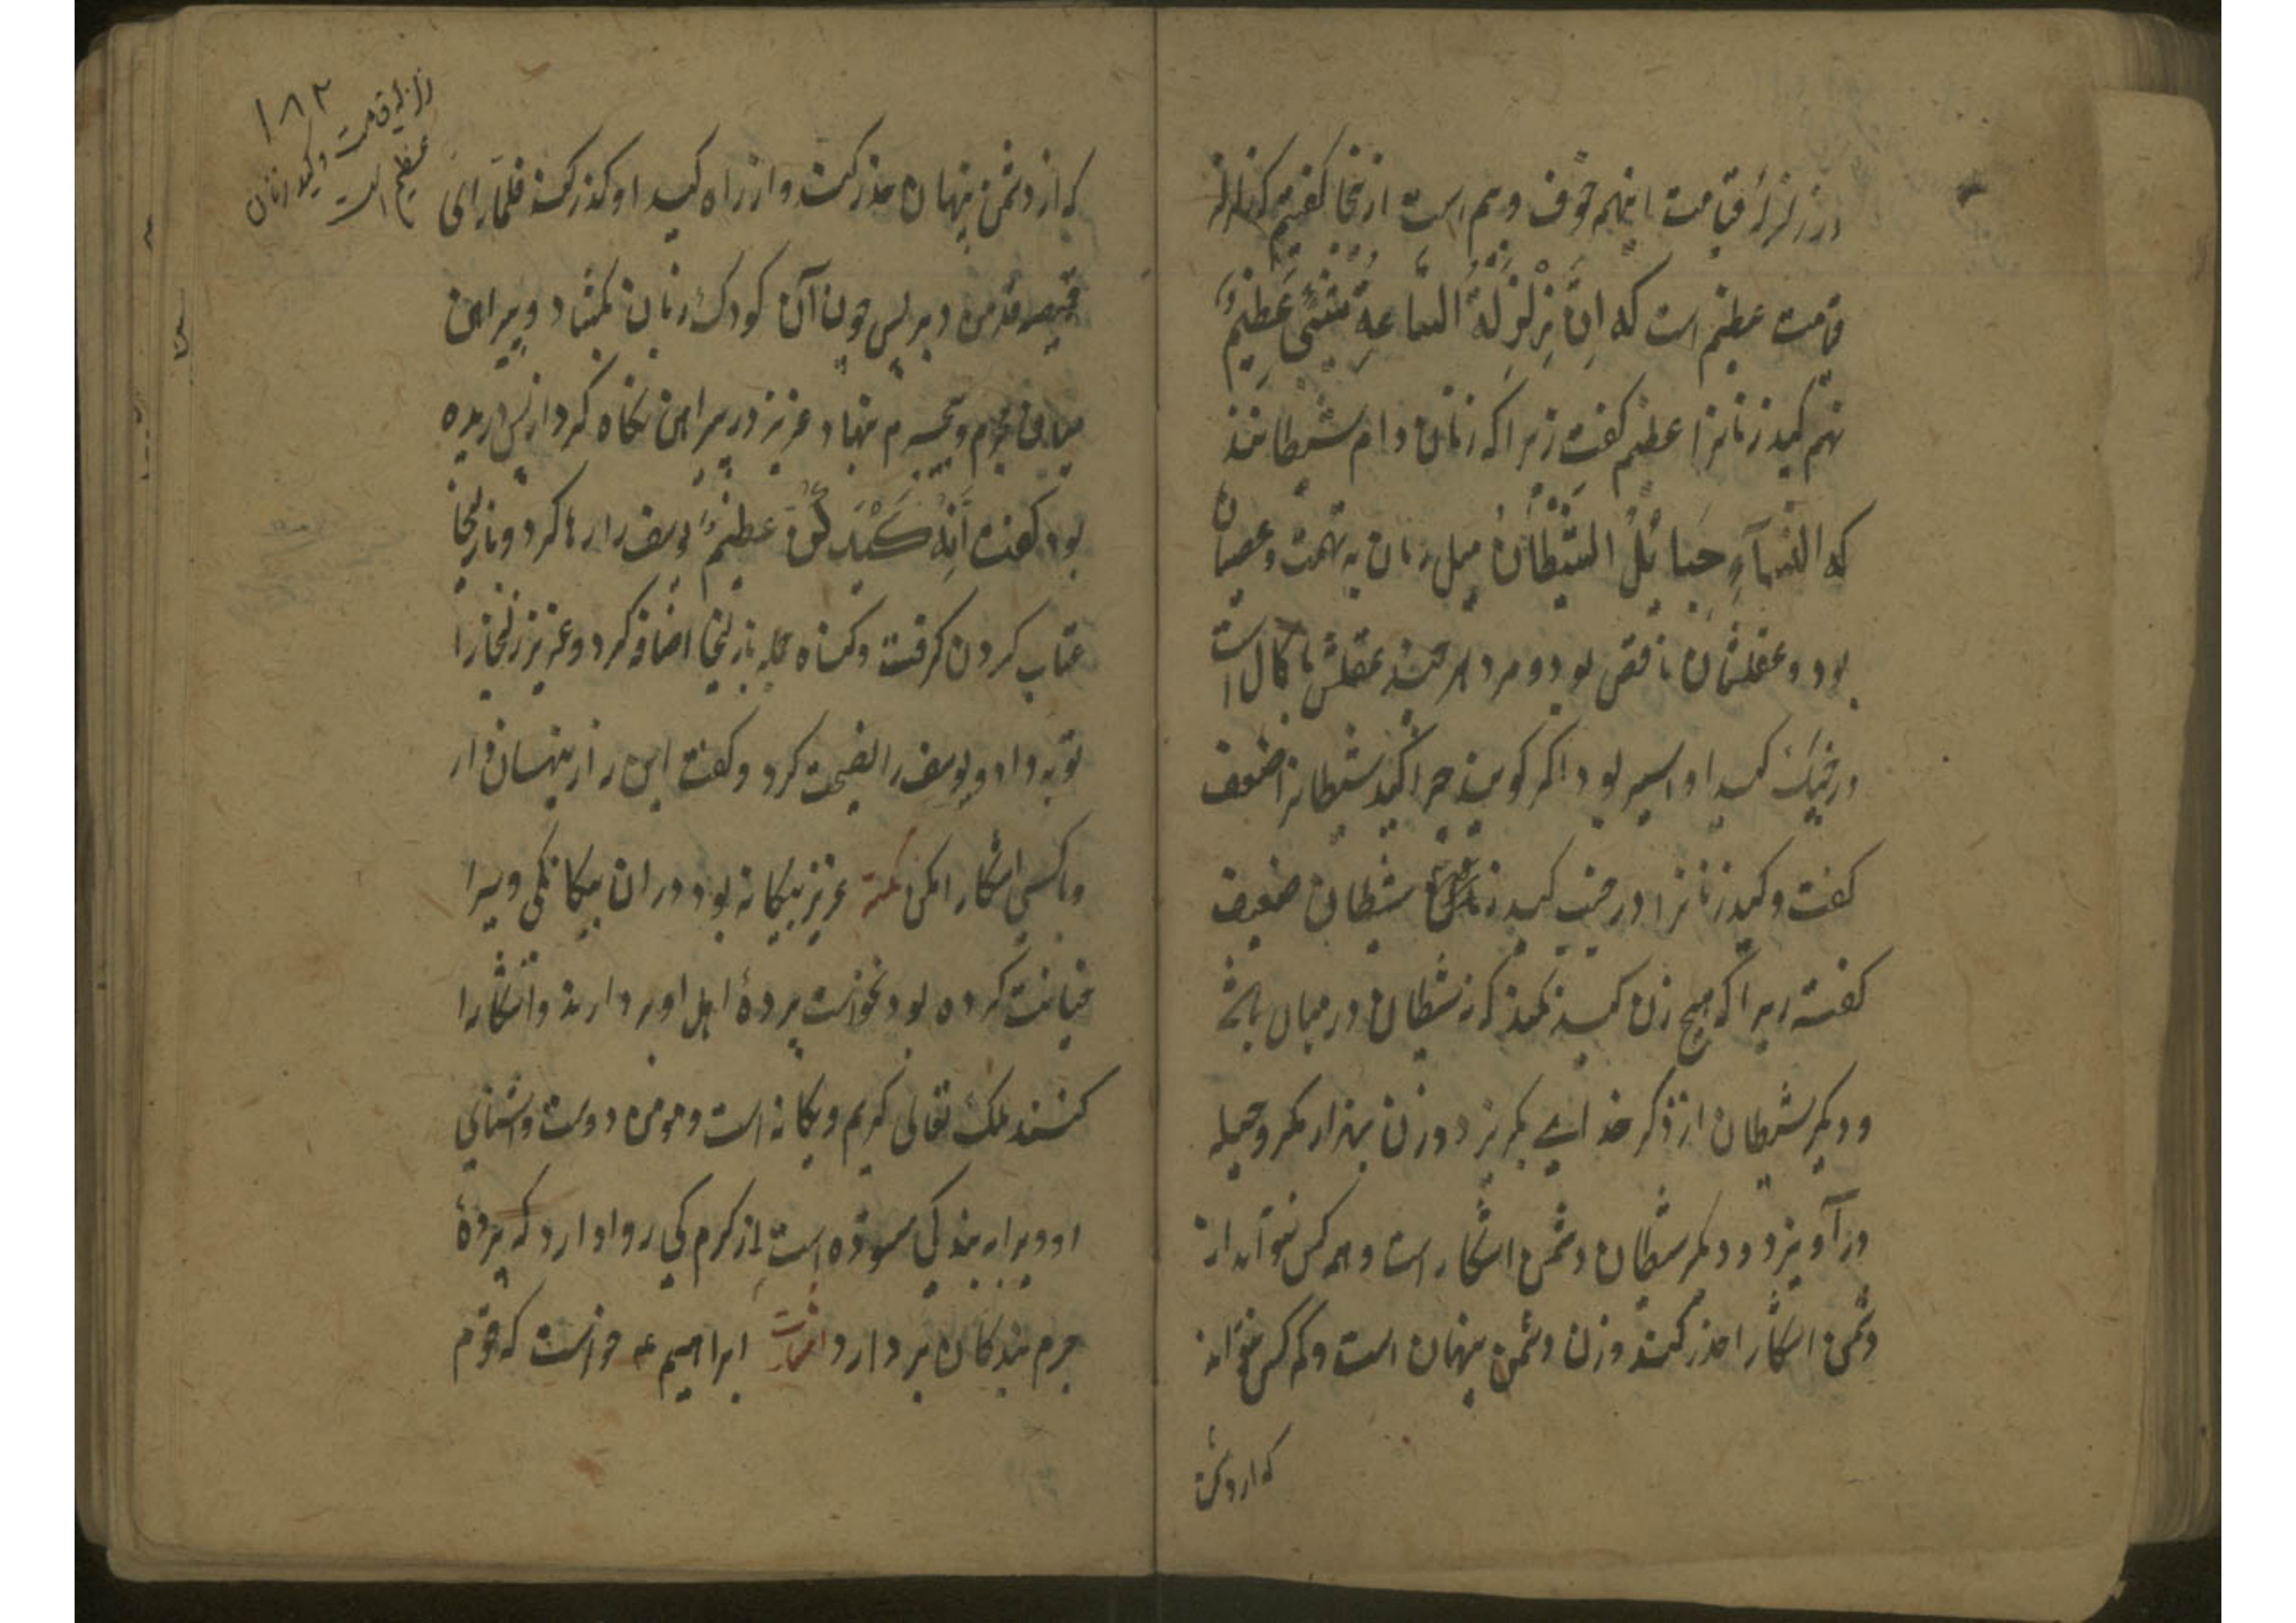 در زلزلهٔ قیامت اینهمه خوف و هم است ازینجا کفتیم که زلزله
قیامت عظیم است که اِنَّ زَلْزَلَةَ السَّاعَةِ شَیْءٌ عَظِیْمٌ
نهم کید زنانرا عظیم کفت زیرا که زنان دام شیطانند
که النسآءِ حَبائلُ الشَّیْطَانُ میل زنان به تهمت و عصیان
بود و عقلشان ناقص بود و مرد هر چند عقلش با کمال است
در جنک کید او اسیر بود اکر کویند چرا کید شیطانرا ضعیف
کفت و کید زنانرا در جنب کید زنان شیطان ضعیف
کفت زیرا که هیچ زن کید نکند که نه شیطان در میان باشد
و دیکر شیطان از ذکر خدای بکریزد و زن بهزار مکر و حیله
در آویزد و دیکر شیطان دشمن اشکار است و هر کس تواند از
دشمن اشکارا حذر کند و زن دشمن پنهان است و کم کس تواند
که از دشمن
۱۸۲
زلزله قیامت و کید زنان
عظیم است
که از دشمن پنهان حذر کند و از راه کید او کذر کند فلمّا رَای
قمیصه قد من دبر پس چون آن کودک زبان بکشاد و پیراهن
میان و نهاد عزیز در پیراهن نکاه کرد از پس دریده
بود کفت اِنَّهُ کَیْدَکُنَّ عظیمٌ یوسف را رها کرد و با زلیخا
عتاب کردن کرفت و کناه بزلیخا اضافه کرد و عزیز زلیخا را
توبه داد و یوسف را نصیحت کرد و کفت این راز پنهان دار
و با کسی اشکارا مکن نکته عزیز بیکانه بود در ان بیکانکی ویرا
خیانت کرده بود نخواست پردهٔ اهل او بر دارند و اشکارا
کنند ملک تعالی کریم و یکانه است و مومن دوست و اشنای
او و برابر بندکی نموده است از کرم کی روا دارد که پردهٔ
جرم بندکان بر دارد اشارت ابراهیم عه خواست که قوم